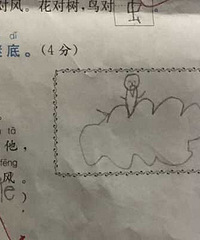 对风。花对树，鸟对虫
dǐ
底。(4分)
tā
他，
fēng
风。
)